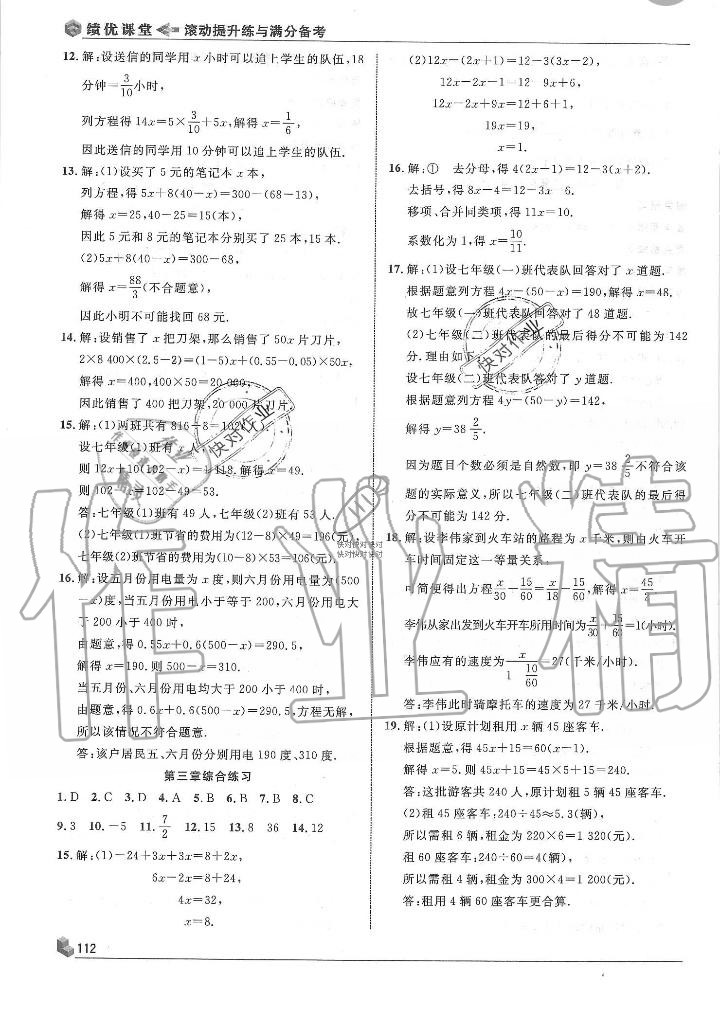 绩优课堂 滚动提升练与满分备考
12. 解:设送信的同学用 x 小时可以追上学生的队伍,18
分钟=3/10小时,
列方程得 14x=5×3/10+5x,解得 x=1/6,
因此送信的同学用 10 分钟可以追上学生的队伍.
13. 解:(1)设买了 5 元的笔记本 x 本,
列方程,得 5x+8(40-x)=300-(68-13),
解得 x=25,40-25=15(本),
因此 5 元和 8 元的笔记本分别买了 25 本,15 本.
(2)5x+8(40-x)=300-68,
解得 x=88/3(不合题意),
因此小明不可能找回 68 元.
14. 解:设销售了 x 把刀架,那么销售了 50x 片刀片,
2×8 400×(2.5-2)=(1-5)x+(0.55-0.05)×50x,
解得 x=400,50x=50×400=20 000,
因此销售了 400 把刀架,20 000 片刀片.
15. 解:(1)两班共有 816÷8=102
设七年级(1)班有 x 人,
则 12x+10(102-x)=1 118.解得 x=49.
则 102-x=102-49=53.
答:七年级(1)班有 49 人,七年级(2)班有 53 人.
(2)七年级(1)班节省的费用为(12-8)×49=196(元),
七年级(2)班节省的费用为(10-8)×53=106(元).
16. 解:设五月份用电量为 x 度,则六月份用电量为(500
-x)度,当五月份用电小于等于 200,六月份用电大
于 200,小于 400 时,
由题意,得 0.55x+0.6(500-x)=290.5,
解得 x=190.则(500-x)=310.
当五月份、六月份用电均大于 200 小于 400 时,
由题意,得 0.6x+0.6(500-x)=290.5,方程无解,
所以该情况不符合题意.
答:该户居民五、六月份分别用电 190 度、310 度.
第三章综合练习
1. D 2. C 3. D 4. A 5. B 6. D 7. B 8. C
9. 3 10. -5 11. 7/2 12. 15 13. 8 36 14. 12
15. 解:(1)-24+3x+3x=8+2x,
6x-2x=8+24,
4x=32,
x=8.
112
(2)12x-(2x+1)=12-3(3x-2),
12x-2x-1=12 9x+6,
12x-2x+9x=12+6+1,
19x=19,
x=1.
16. 解:① 去分母,得 4(2x-1)=12-3(x+2).
去括号,得 8x-4=12-3x 6.
移项、合并同类项,得 11x=10.
系数化为 1,得 x=10/11.
17. 解:(1)设七年级(一)班代表队回答对了 x 道题.
根据题意列方程 4x-(50-x)=190,解得 x=48.
故七年级(一)班代表队回答对了 48 道题.
(2)七年级(二)班代表队的最后得分不可能为 142
分.理由如下:
设七年级(二)班代表队答对了 y 道题.
根据题意列方程 4y-(50-y)=142,
解得 y=38 2/5.
因为题目个数必须是自然数,即 y=38 2/5不符合该
题的实际意义,所以七年级(二)班代表队的最后得
分不可能为 142 分.
18. 解:设李伟家到火车站的路程为 x 千米,则由火车开
车时间固定这一等量关系,
可简便得出方程 x/30-15/60=x/18+15/60,解得 x=45/2
李伟从家出发到火车开车所用时间为x/30+15/60=1(小时).
李伟应有的速度为 x/(1 10/60)=27(千米/小时)
答:李伟此时骑摩托车的速度为 27 千米/小时.
19. 解:(1)设原计划租用 x 辆 45 座客车.
根据题意,得 45x+15=60(x-1),解得 x=5.
则 45x+15=45×5+15=240.
答:这批游客共 240 人,原计划租用 5 辆 45 座客车.
(2)租 45 座客车:240÷45≈5.3(辆),
所以需租 6 辆,租金为 220×6=1 320(元).
租 60 座客车:240÷60=4(辆),
所以需租 4 辆,租金为 300×4=1 200(元).
答:租用 4 辆 60 座客车更合算.
快对作业
快对作业
快对快对快对
快对快对快对
作业精